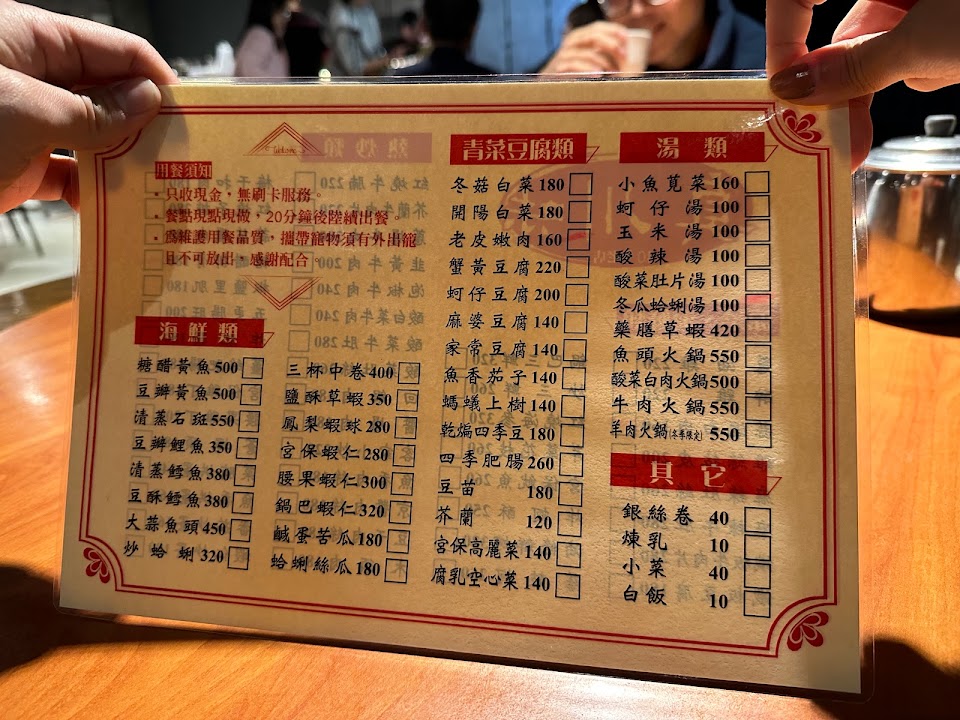 用餐須知
・只收現金，無刷卡服務。
・餐點現點現做，20分鐘後陸續出餐。
・為維護用餐品質，攜帶寵物須有外出籠
且不可放出，感謝配合。
海鮮類
糖醋黃魚500
豆瓣黃魚500
清蒸石斑550
豆瓣鯉魚350
清蒸鱈魚380
豆酥鱈魚380
大蒜魚頭450
炒蛤蜊320
三杯中卷400
鹽酥草蝦350
鳳梨蝦球280
宮保蝦仁280
腰果蝦仁300
鍋巴蝦仁320
鹹蛋苦瓜180
蛤蜊絲瓜180
青菜豆腐類
冬菇白菜180
開陽白菜180
老皮嫩肉160
蟹黃豆腐220
蚵仔豆腐200
麻婆豆腐140
家常豆腐140
魚香茄子140
螞蟻上樹140
乾煸四季豆180
四季肥腸260
豆苗 180
芥蘭 120
宮保高麗菜140
腐乳空心菜140
湯類
小魚莧菜160
蚵仔湯100
玉米湯100
酸辣湯100
酸菜肚片湯100
冬瓜蛤蜊湯100
藥膳草蝦420
魚頭火鍋550
酸菜白肉火鍋500
牛肉火鍋550
羊肉火鍋(冬季限定)550
其它
銀絲卷 40
煉乳 10
小菜 40
白飯 10